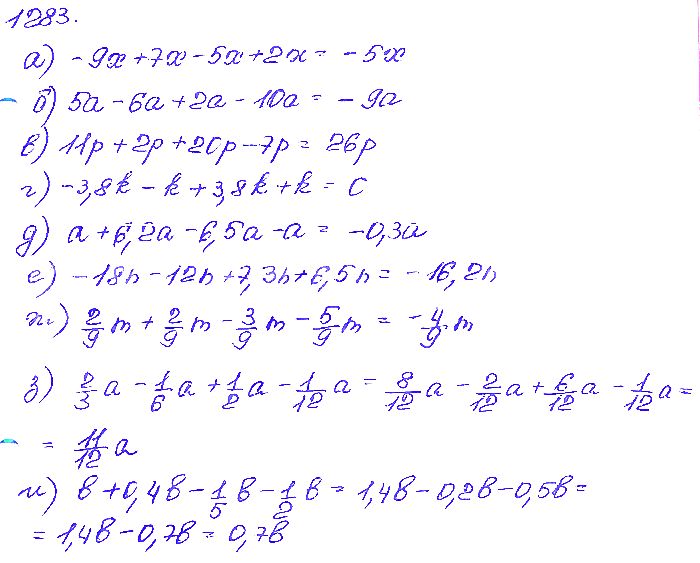 1283.
а) -9x+7x-5x+2x= -5x
б) 5a-6a+2a-10a= -9a
в) 11p+2p+20p-7p= 26p
г) -3,8k-k+3,8k+k= 0
д) a+6,2a-6,5a-a= -0,3a
е) -18n-12n+7,3n+6,5n= -16,2n
ж) 2/9 m + 2/9 m - 3/9 m - 5/9 m = -4/9 m
з) 2/3 a - 1/6 a + 1/2 a - 1/12 a = 8/12 a - 2/12 a + 6/12 a - 1/12 a =
= 11/12 a
и) b+0,4b - 1/5 b - 1/2 b = 1,4b-0,2b-0,5b=
= 1,4b-0,7b= 0,7b